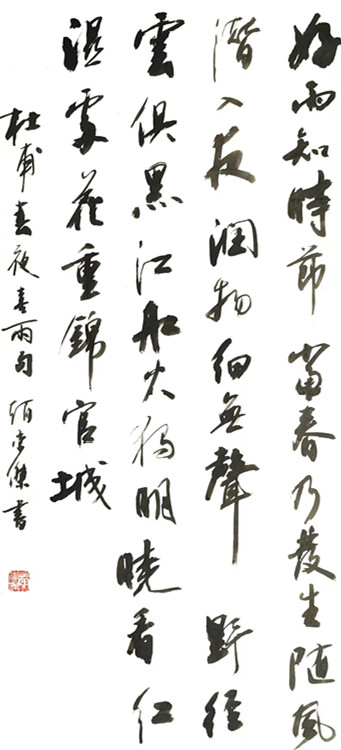 好雨知時節當春乃發生随風
潛入夜潤物細無聲野徑
雲俱黑江船火獨明曉看紅
湿處花重錦官城
杜甫春夜喜雨句傑書